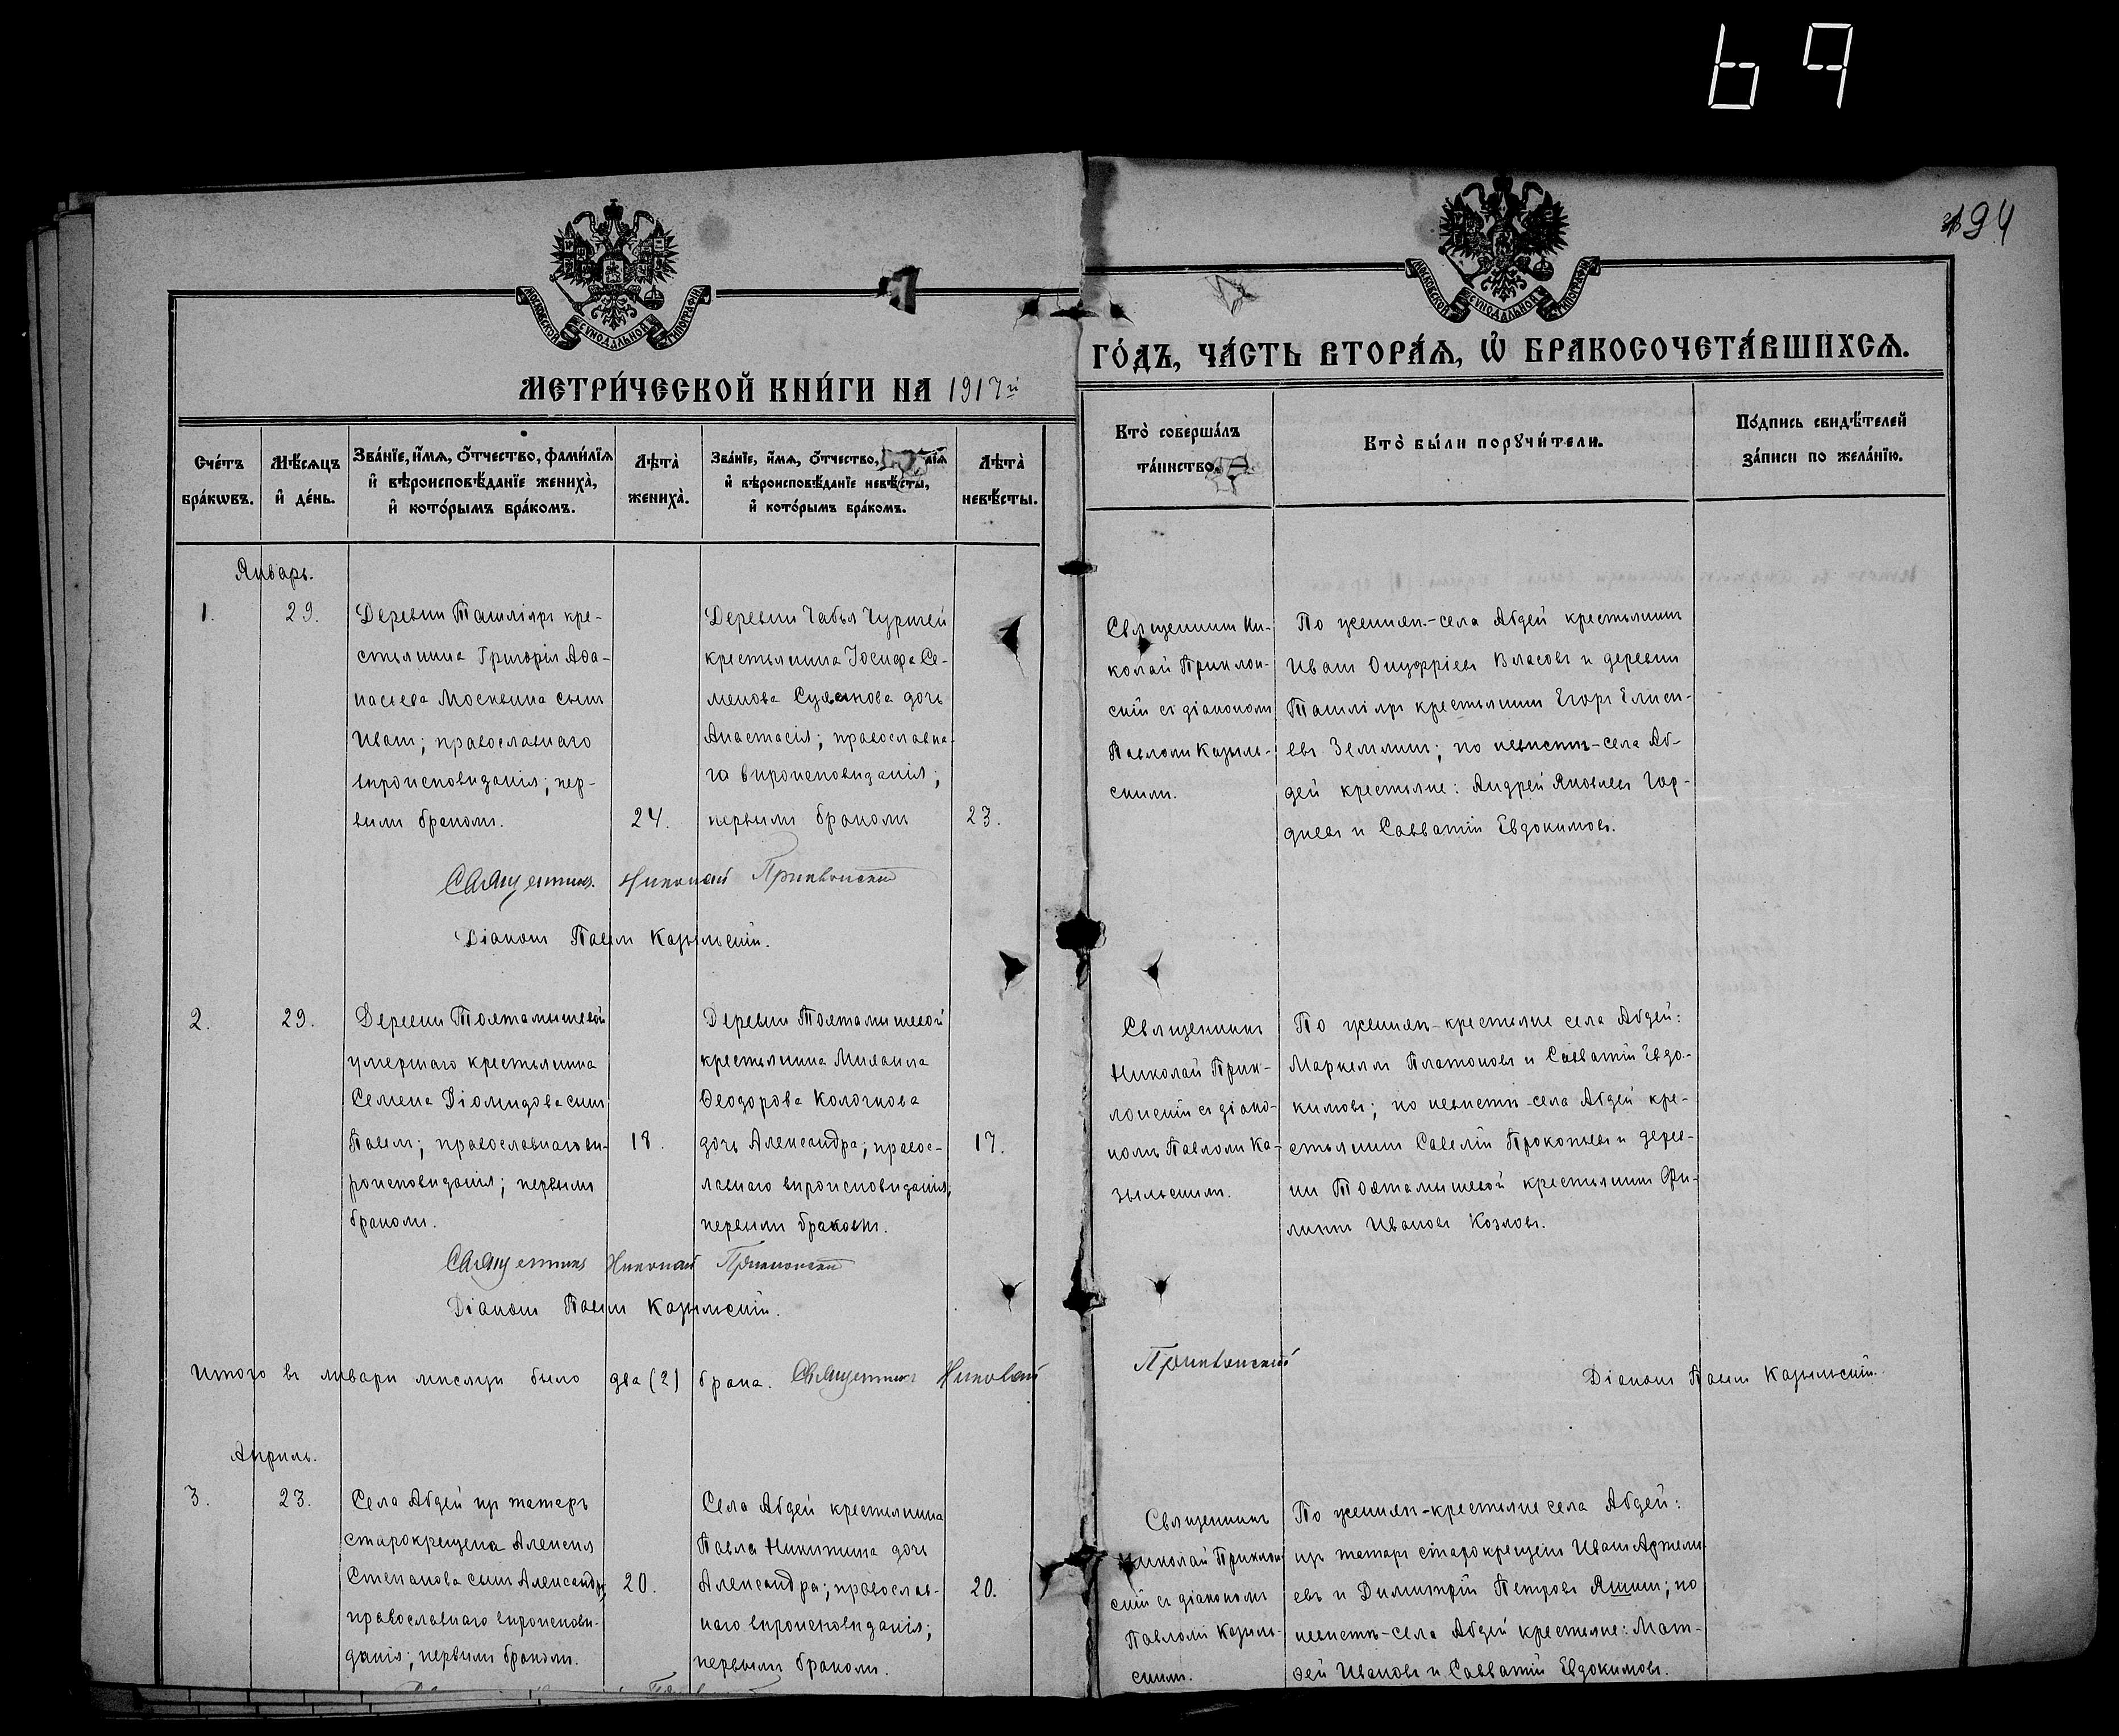 69
194
МОСКОВСКОЙ СУНОДАЛЬНОЙ ТИПОГРАФІИ
МОСКОВСКОЙ СУНОДАЛЬНОЙ ТИПОГРАФІИ
МЕТРИ́ЧЕСКОЙ КНИ́ГИ НА 1917й
ГО́ДЪ, ЧА́СТЬ ВТОРА́Ѧ, Ѽ БРАКОСОЧЕТА́ВШИХСѦ.
Сче́тъ
бра́кѡвъ.
Мѣ́сѧцъ
и҆ де́нь.
Зва́нїе, и҆́мѧ, ѻ҆́тчество, фами́лїѧ
и҆ вѣроисповѣ́данїе жениха̀,
и҆ кото́рымъ бра́комъ.
Лѣта̀
жениха̀.
Зва́нїе, и҆́мѧ, ѻ҆́тчество, лїѧ
и҆ вѣроисповѣ́данїе невѣ́сты,
и҆ кото́рымъ бра́комъ.
Лѣта̀
невѣ́сты.
Кто̀ соверша́лъ
та́инство.
Кто̀ бы́ли порꙋчи́тели.
По́дпись свидѣ́телей
за́писи по жела́нїю.
Январь.
1.
29.
Деревни Ташлияръ кре-
стьянина Григорія Аѳа-
насьева Москвина сынъ
Иванъ; православнаго
вѣроисповѣданія; пер-
вымъ бракомъ.
24.
Деревни Чабья Чурчей
крестьянина Іосифа Се-
менова дочь
Анастасія; православна-
го вѣроисповѣданія;
первымъ бракомъ
23.
Священникъ Ни-
колай Приклон-
скій съ діакономъ
Павломъ Казыль-
скимъ.
По женихѣ-села Абдей крестьянинъ
Иванъ Онуфріевъ Власовъ и деревни
Ташлияръ крестьянинъ Егоръ Елисе-
евъ Землинъ; по невѣстѣ-села Аб-
дей крестьяне: Андрей Яковлевъ Гор-
дѣевъ и Савватій Евдокимовъ.
Священникъ Николай Приклонскій
Діаконъ Павелъ Казыльскій.
2.
29.
Деревни Тохтамышевой
умершаго крестьянина
Семена Діомидова сынъ
Павелъ; православнаго вѣ-
роисповѣданія; первымъ
бракомъ.
18.
Деревни Тохтамышевой
крестьянина Михаила
Ѳеодорова Колочкова
дочь Александра; правос-
лавнаго вѣроисповѣданія;
первымъ бракомъ.
17.
Священникъ
Николай Прик-
лонскій съ діако-
номъ Павломъ Ка-
зыльскимъ.
По женихѣ-крестьяне села Абдей:
Маркеллъ Платоновъ и Савватій Евдо-
кимовъ; по невѣстѣ-села Абдей кре-
стьянинъ Савелій Прокопьевъ и дерев-
ни Тохтамышевой крестьянинъ Фи-
липпъ Ивановъ Козловъ.
Священникъ Николай Приклонскій
Діаконъ Павелъ Казыльскій.
Итого въ январѣ мѣсяцѣ было два (2) брака. Священникъ Николай Приклонскій
Діаконъ Павелъ Казыльскій.
Апрѣль.
3.
23.
Села Абдей изъ татаръ
старокрещена Алексѣя
Степанова сынъ Александръ;
православнаго вѣроисповѣ-
данія; первымъ бракомъ.
20.
Села Абдей крестьянина
Павла Никитина дочь
Александра; православ-
наго вѣроисповѣданія;
первымъ бракомъ.
20.
Священникъ
Николай Приклон-
скій съ діакономъ
Павломъ Казыль-
скимъ.
По женихѣ-крестьяне села Абдей:
изъ татаръ старокрещенъ Иванъ Артемь-
евъ и Димитрій Петровъ Яшинъ; по
невѣстѣ-села Абдей крестьяне: Мат-
ѳей Ивановъ и Савватій Евдокимовъ.